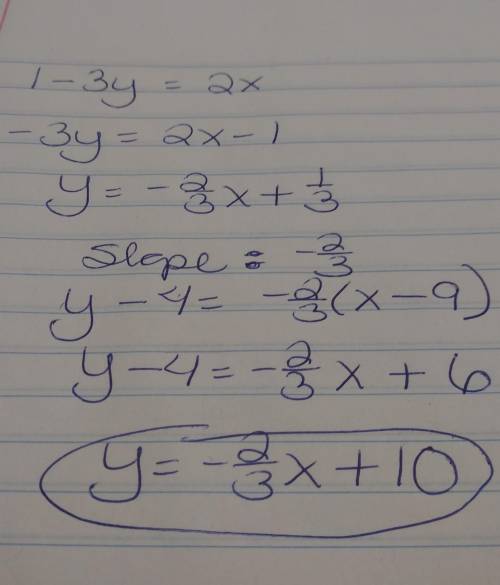 1 - 3y = 2x
-3y = 2x - 1
y = -2/3 x + 1/3
Slope: -2/3
y - 4 = -2/3 (x - 9)
y - 4 = -2/3 x + 6
y = -2/3 x + 10